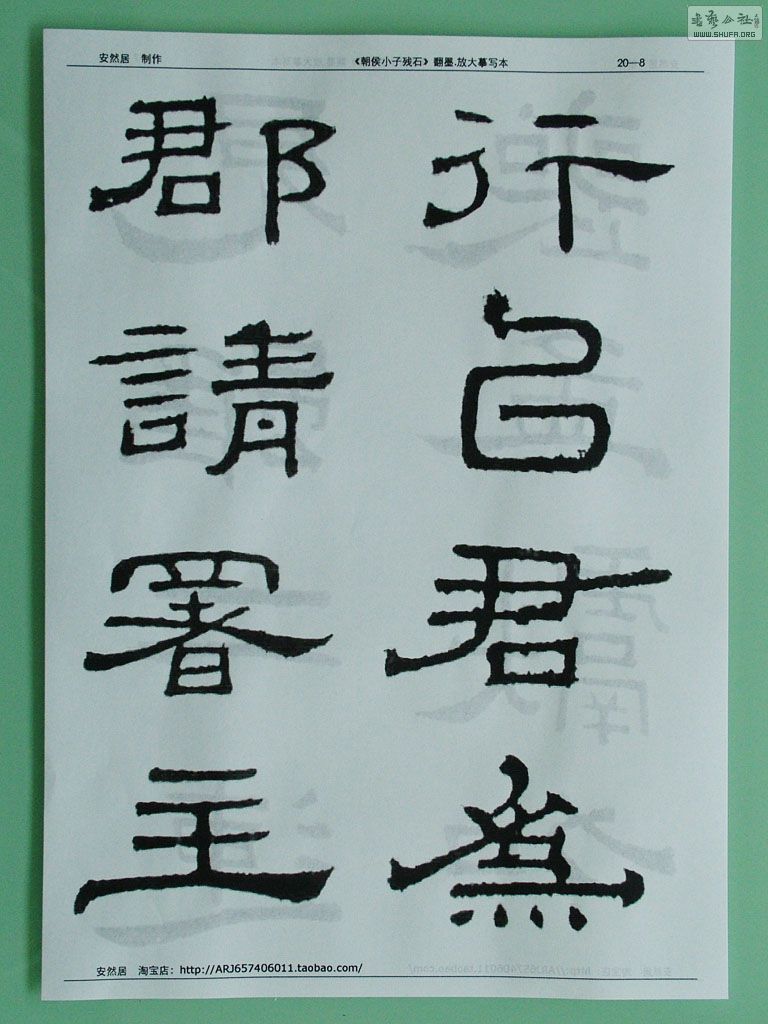 书艺公社
WWW.SHUFA.ORG
安然居 制作 《朝侯小子残石》翻墨.放大摹写本 20—8
行君為
郡請署主
安然居 淘宝店：http://ARJ657406011.taobao.com/